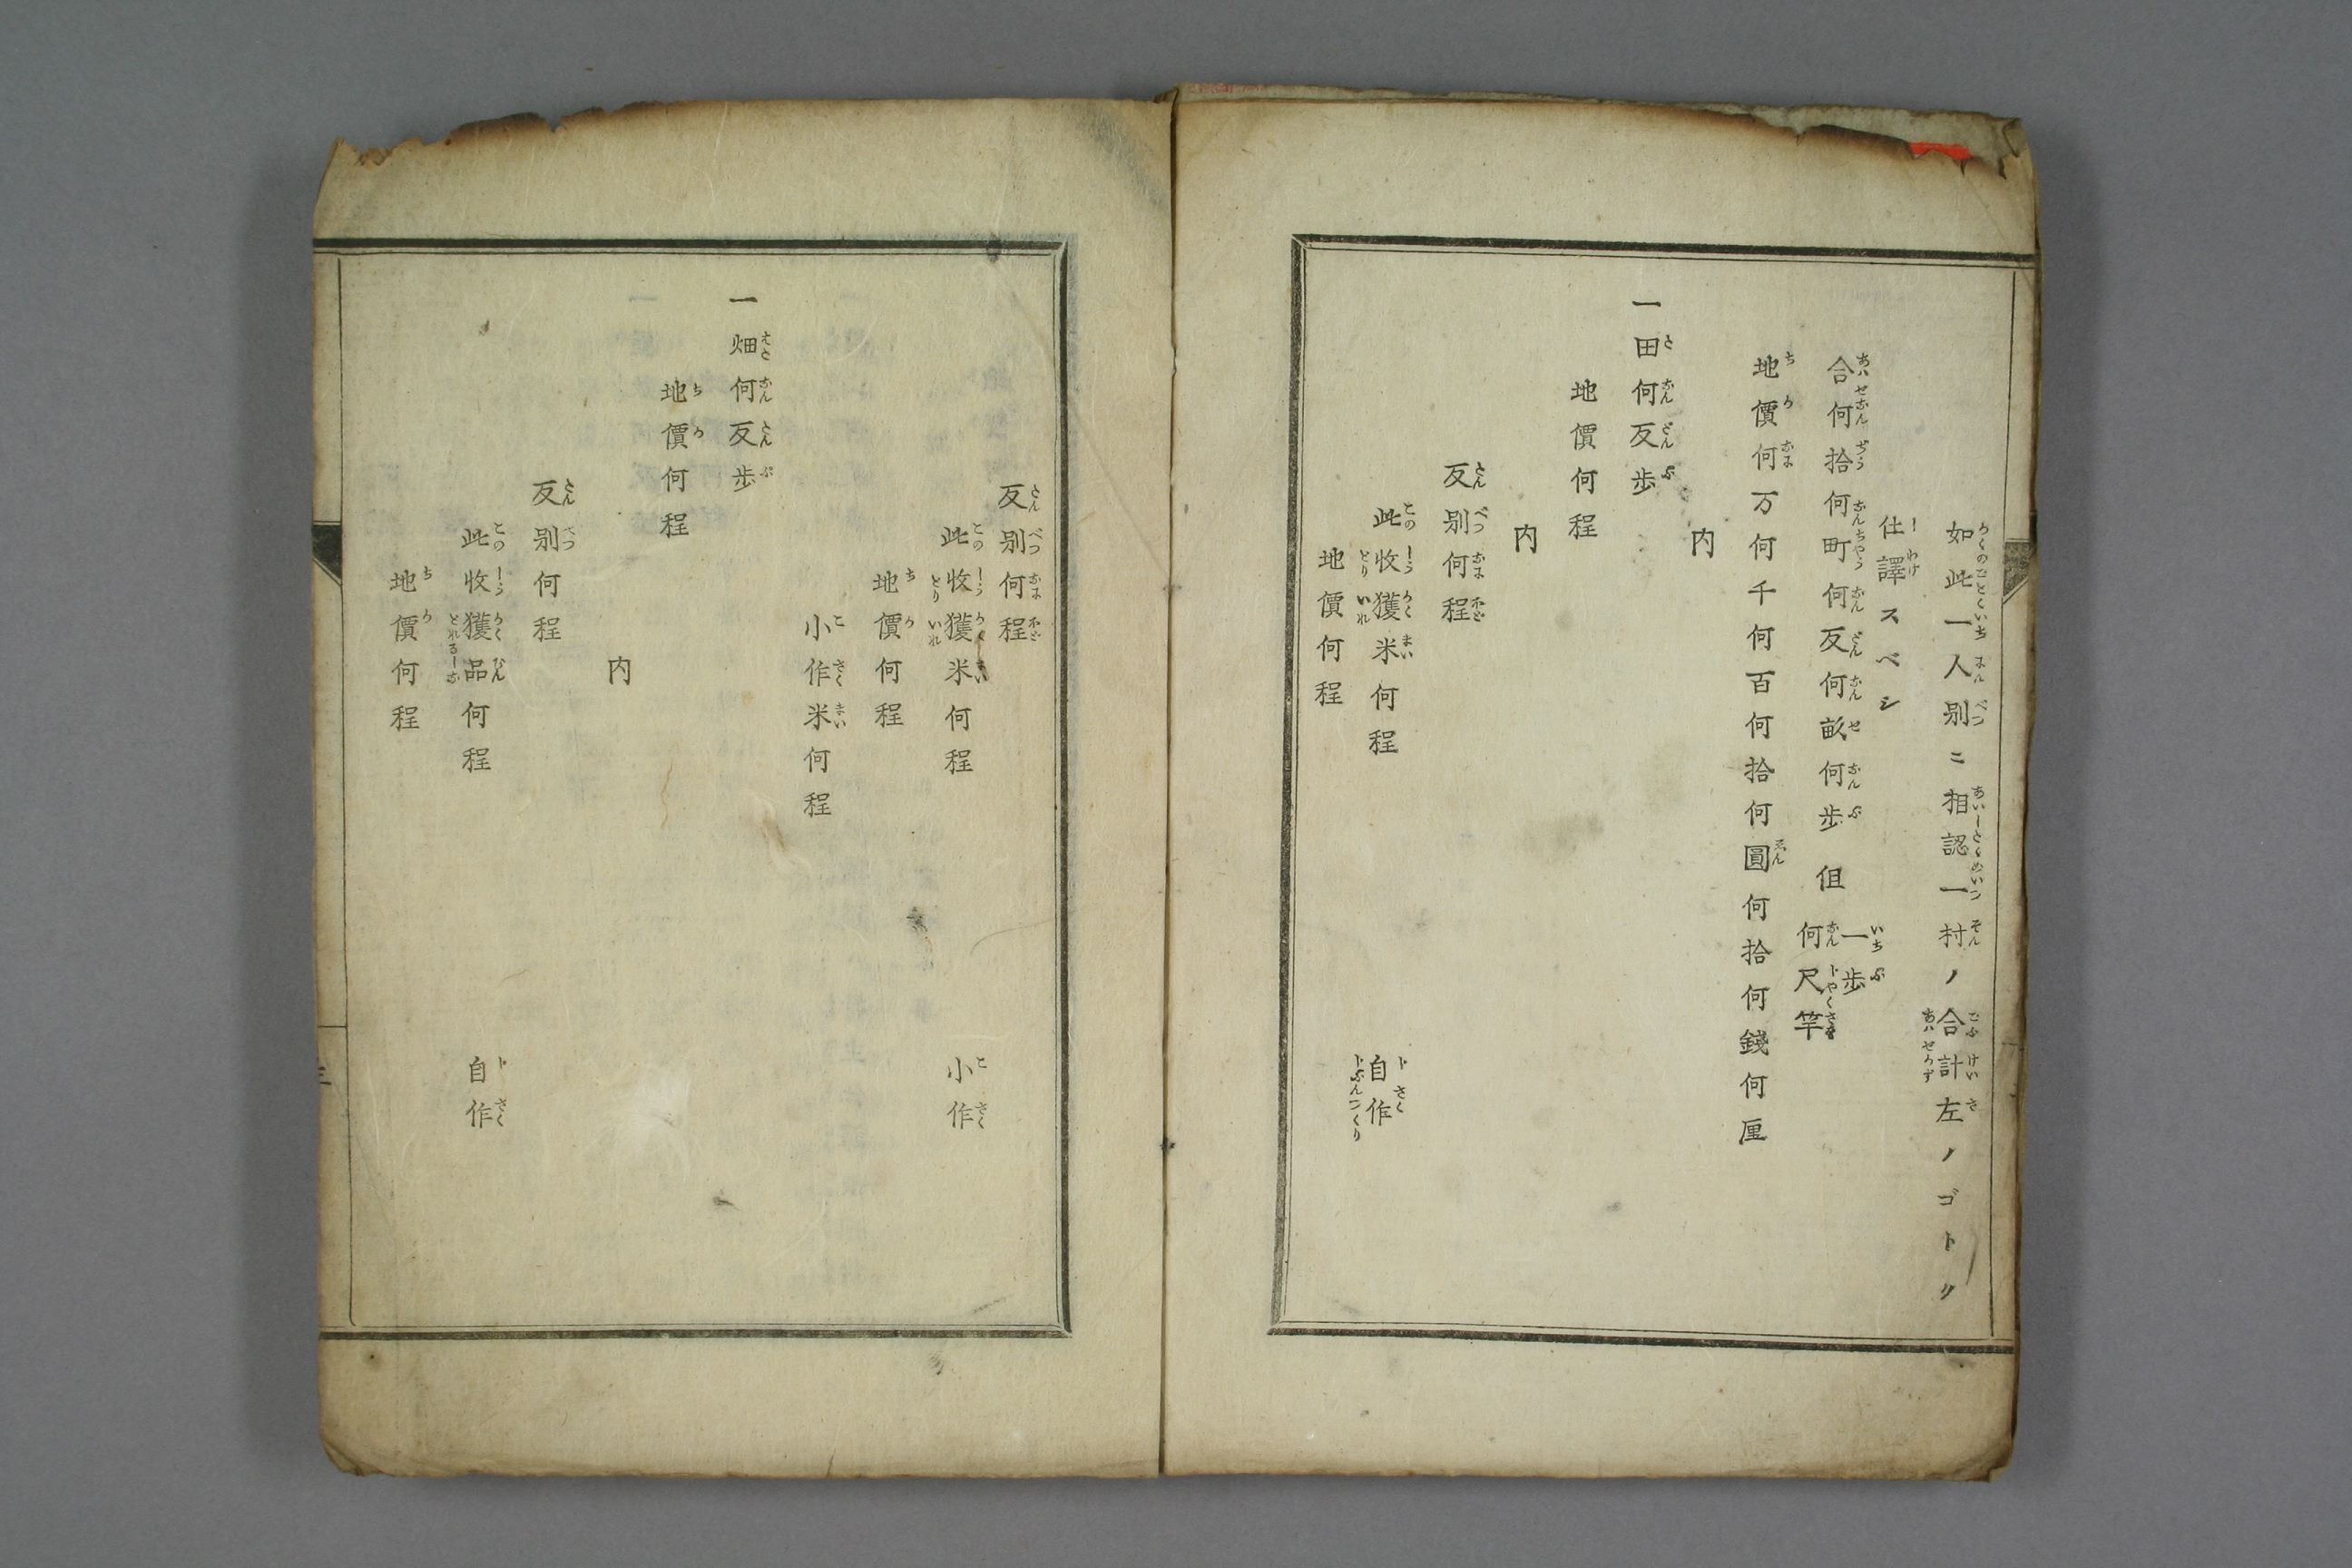 如此一人別ニ相認一村ノ合計左ノゴトク
仕譯スベシ
合何拾何町何反何畝何歩 但 一歩
何尺竿
地價何万何千何百何拾何圓何拾何錢何厘
内
一田何反歩
地價何程
内
反别何程
此收獲米何程 自作
地價何程
反别何程
此收獲米何程 小作
地價何程
小作米何程
一畑何反歩
地價何程
内
反别何程
此收獲品何程 自作
地價何程